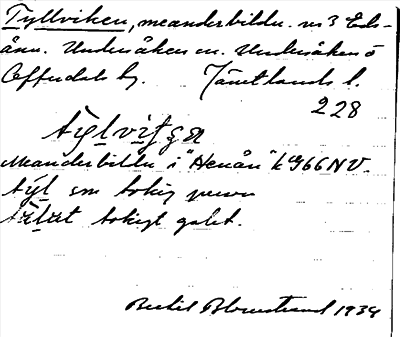 Tyllviken, meanderbildn. vs 3 Eds-
ånn. Undersåkers sn. Undersåkers o
Offerdals tg. Jämtlands l.
228
Meanderbildn i "Henån" k 966 NV.
tyl en tokig person
tokigt galet.
Bertil Blomstrand 1934